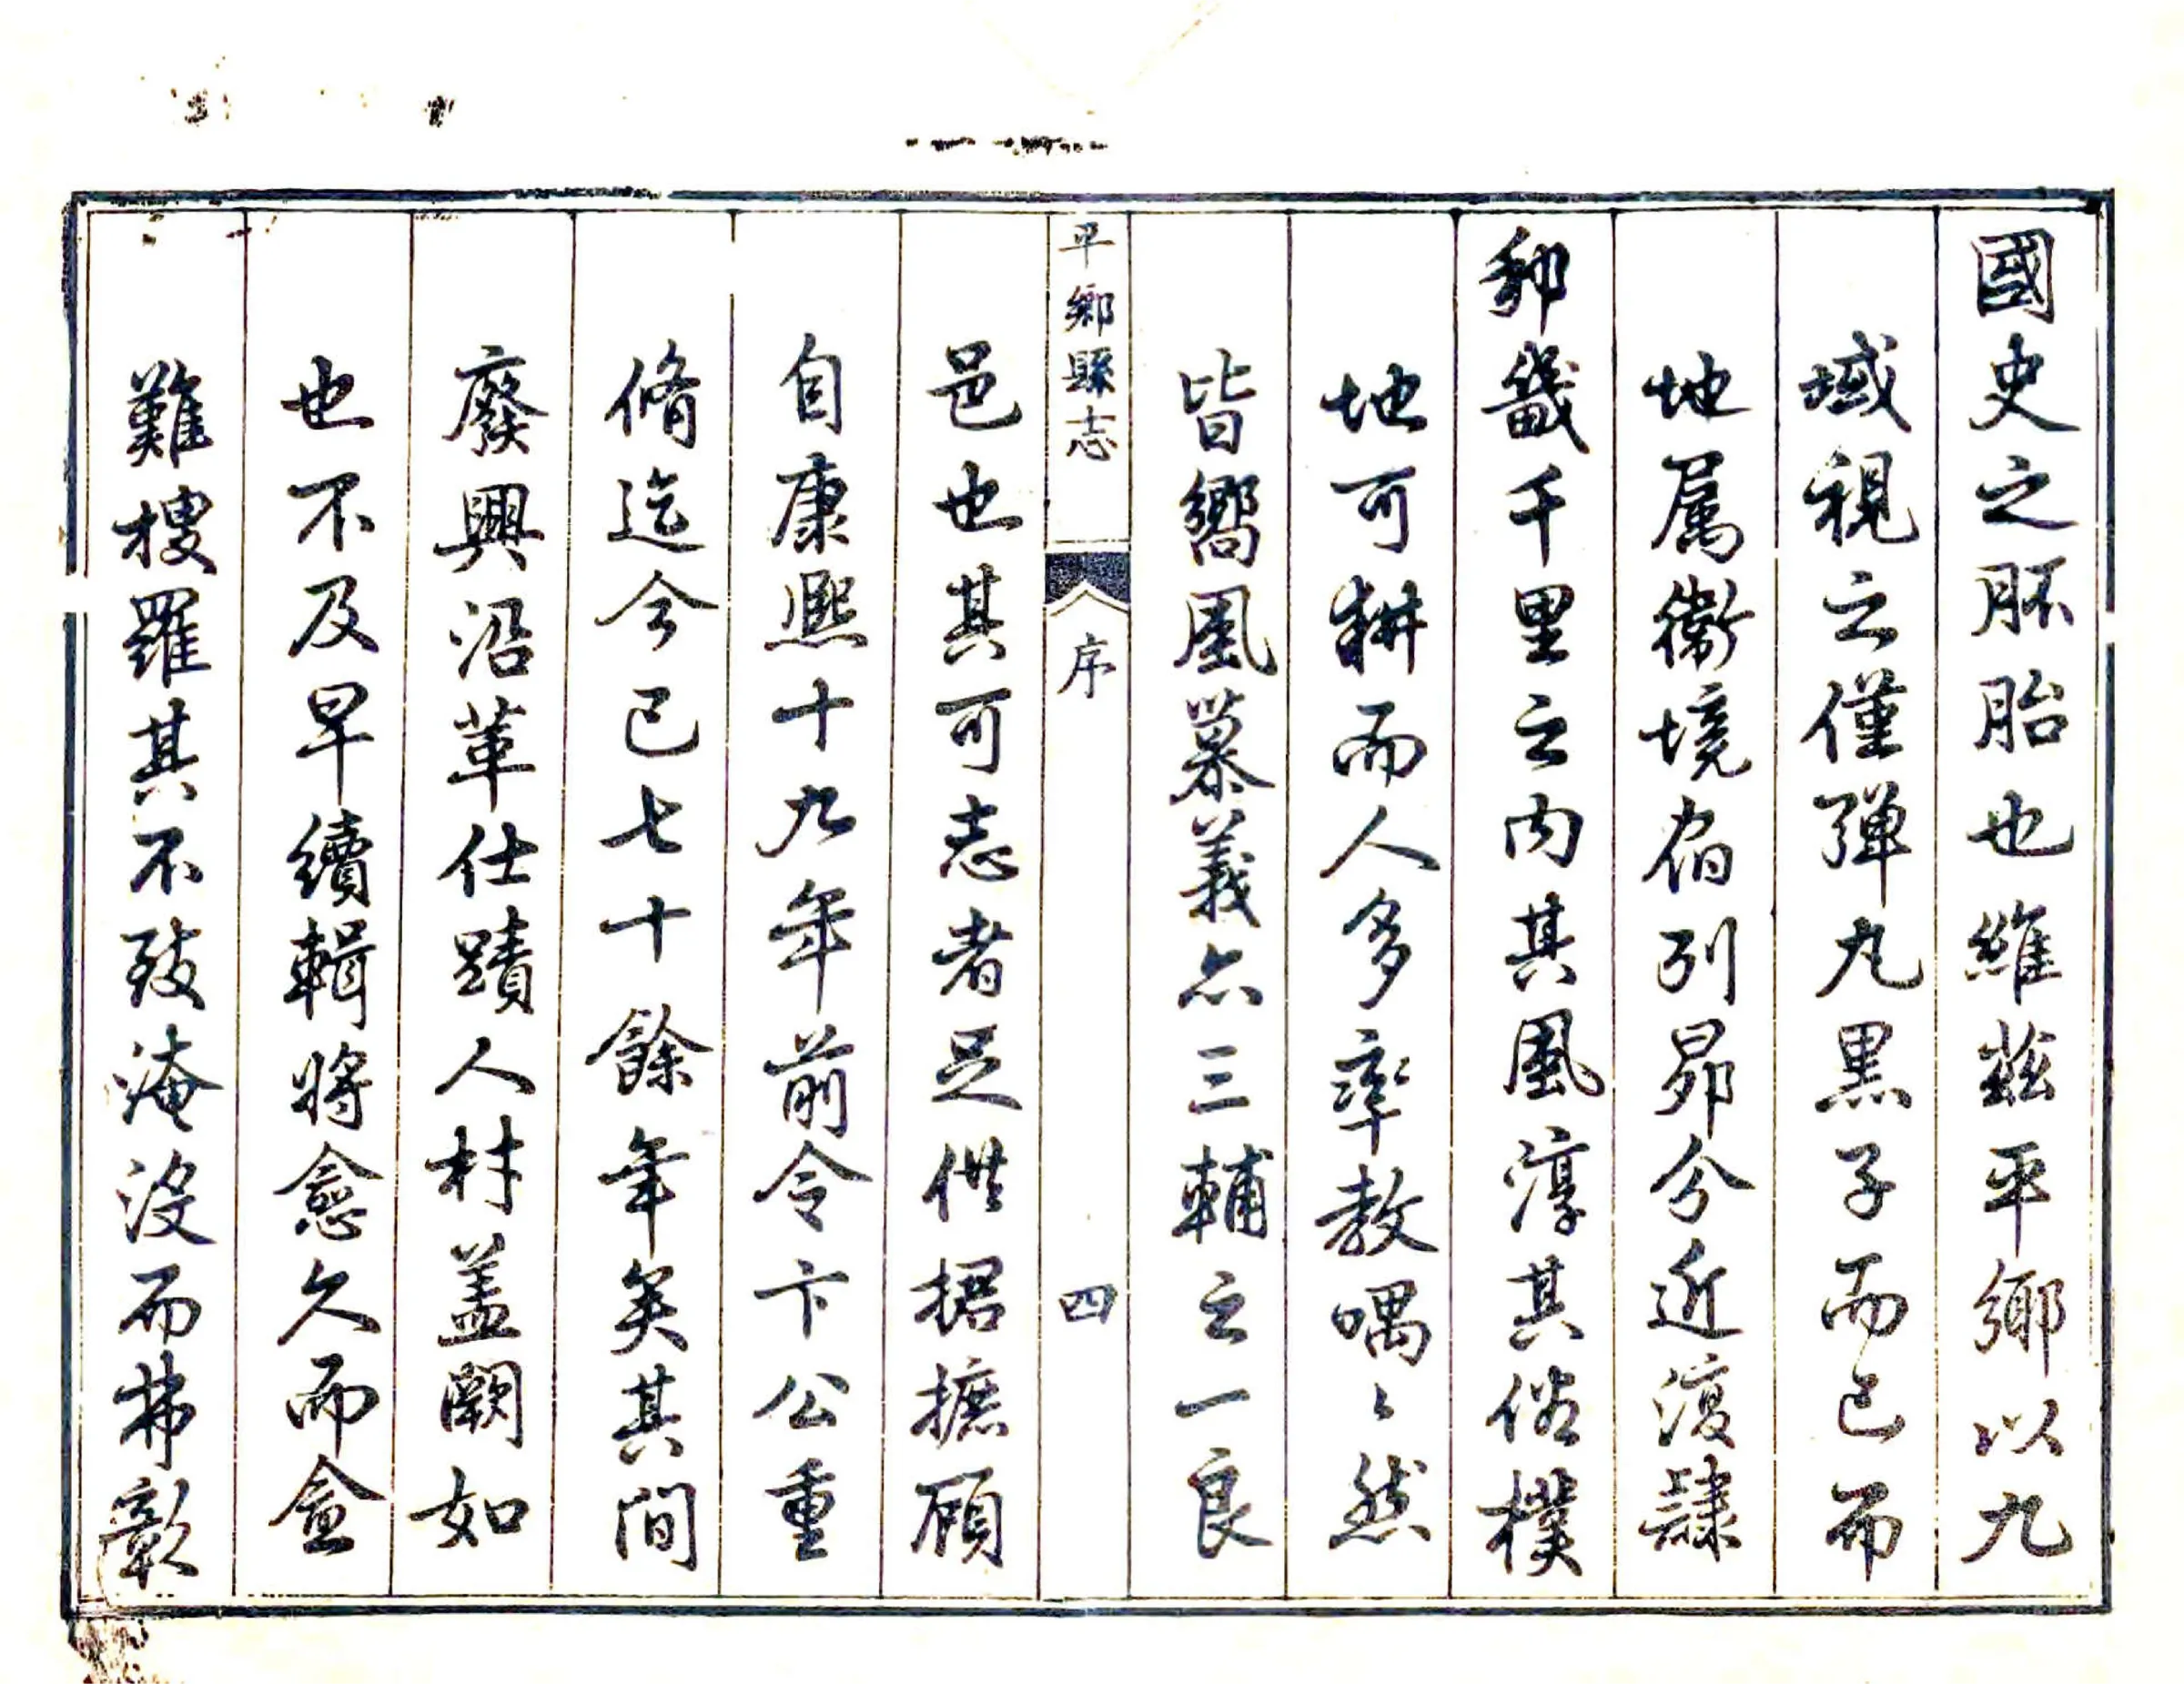 國史之胚胎也維茲平鄉以九
域視之僅彈丸黑子而已而
地属衛境宿列昴分近復隸
邦畿千里之内其風淳其俗樸
地可耕而人多率教喁〻然
皆嚮風慕義亦三輔之一良
平鄉縣志
序
四
邑也其可志者足供捃摭顧
自康熙十九年前令卞公重
脩迄今已七十餘年矣其間
廢興沿革仕蹟人材蓋闕如
也不及早續輯將愈久而愈
難搜羅其不致淹没而弗彰